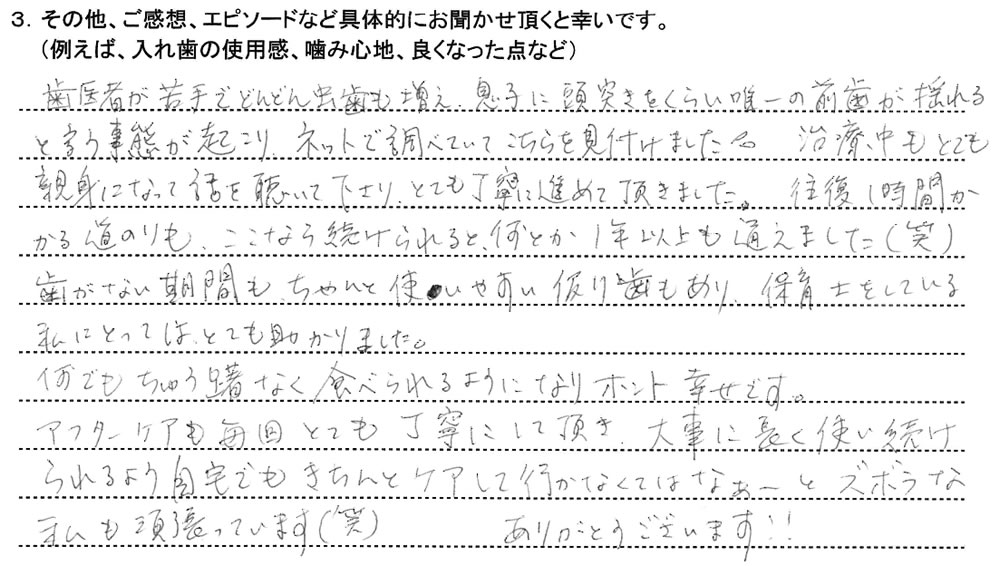 3. その他、ご感想、エピソードなど具体的にお聞かせ頂くと幸いです。
(例えば、入れ歯の使用感、噛み心地、良くなった点など)
歯医者が苦手でどんどん虫歯も増え、息子に頭突きをくらい唯一の前歯が揺れる
と言う事態が起こり、ネットで調べていてこちらを見付けました。 治療中もとても
親身になって話を聴いて下さり、とても丁寧に進めて頂きました。 往復1時間か
かる道のりも、ここなら続けられると、何とか1年以上も通えました(笑)
歯がない期間も、ちゃんと使いやすい仮り歯もあり、保育士をしている
私にとっては、とても助かりました。
何でもちゅう躇なく食べられるようになりホント幸せです。
アフターケアも毎回とても丁寧にして頂き、大事に長く使い続け
られるよう自宅でもきちんとケアして行かなくてはなぁーとズボラな
私も頑張っています(笑) ありがとうございます!!